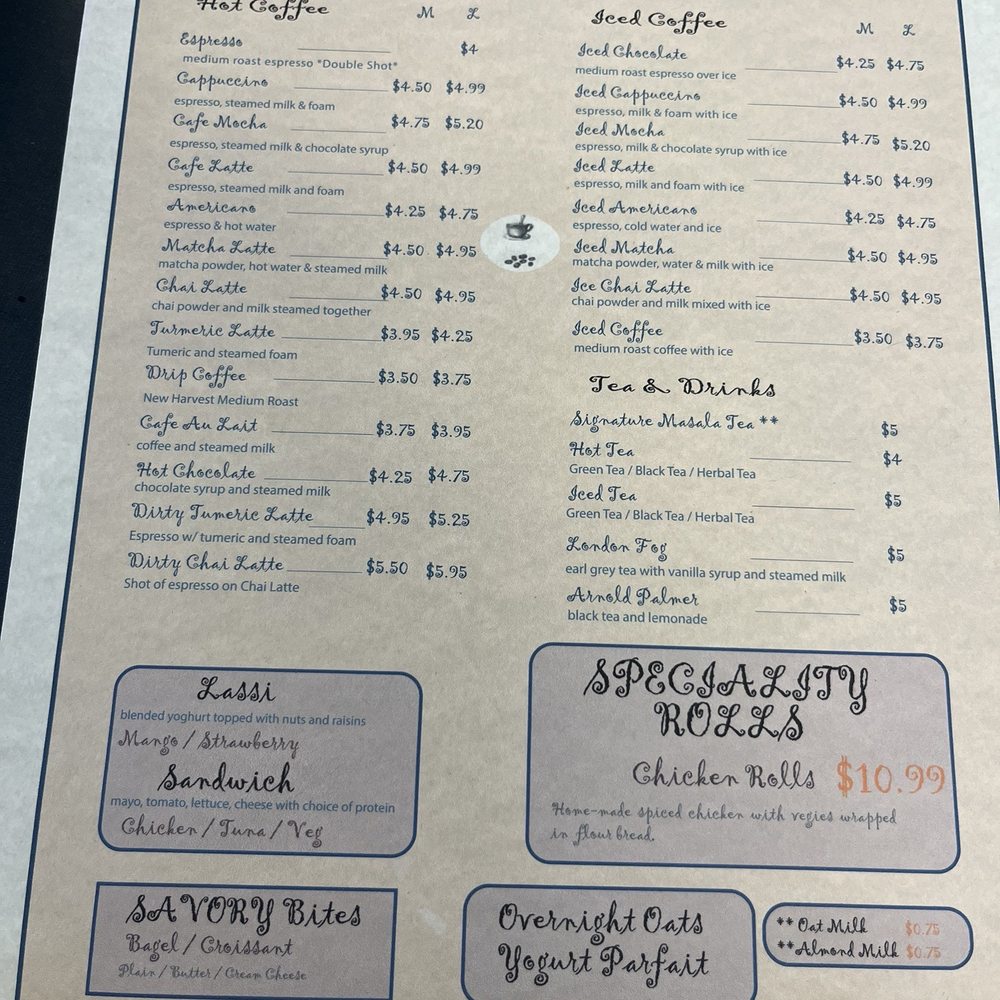 Hot Coffee M L
Espresso $4
medium roast espresso *Double Shot*
Cappuccino $4.50 $4.99
espresso, steamed milk & foam
Cafe Mocha $4.75 $5.20
espresso, steamed milk & chocolate syrup
Cafe Latte $4.50 $4.99
espresso, steamed milk and foam
Americano $4.25 $4.75
espresso & hot water
Matcha Latte $4.50 $4.95
matcha powder, hot water & steamed milk
Chai Latte $4.50 $4.95
chai powder and milk steamed together
Turmeric Latte $3.95 $4.25
Tumeric and steamed foam
Drip Coffee $3.50 $3.75
New Harvest Medium Roast
Cafe Au Lait $3.75 $3.95
coffee and steamed milk
Hot Chocolate $4.25 $4.75
chocolate syrup and steamed milk
Dirty Tumeric Latte $4.95 $5.25
Espresso w/ tumeric and steamed foam
Dirty Chai Latte $5.50 $5.95
Shot of espresso on Chai Latte
Iced Coffee M L
Iced Chocolate $4.25 $4.75
medium roast espresso over ice
Iced Cappuccino $4.50 $4.99
espresso, milk & foam with ice
Iced Mocha $4.75 $5.20
espresso, milk & chocolate syrup with ice
Iced Latte $4.50 $4.99
espresso, milk and foam with ice
Iced Americano $4.25 $4.75
espresso, cold water and ice
Iced Matcha $4.50 $4.95
matcha powder, water & milk with ice
Ice Chai Latte $4.50 $4.95
chai powder and milk mixed with ice
Iced Coffee $3.50 $3.75
medium roast coffee with ice
Tea & Drinks
Signature Masala Tea ** $5
Hot Tea $4
Green Tea / Black Tea / Herbal Tea
Iced Tea $5
Green Tea / Black Tea / Herbal Tea
London Fog $5
earl grey tea with vanilla syrup and steamed milk
Arnold Palmer $5
black tea and lemonade
Lassi
blended yoghurt topped with nuts and raisins
Mango / Strawberry
Sandwich
mayo, tomato, lettuce, cheese with choice of protein
Chicken / Tuna / Veg
SPECIALITY
ROLLS
Chicken Rolls $10.99
Home-made spiced chicken with vegies wrapped
in flour bread.
SAVORY Bites
Bagel / Croissant
Plain / Butter / Cream Cheese
Overnight Oats
Yogurt Parfait
** Oat Milk $0.75
**Almond Milk $0.75